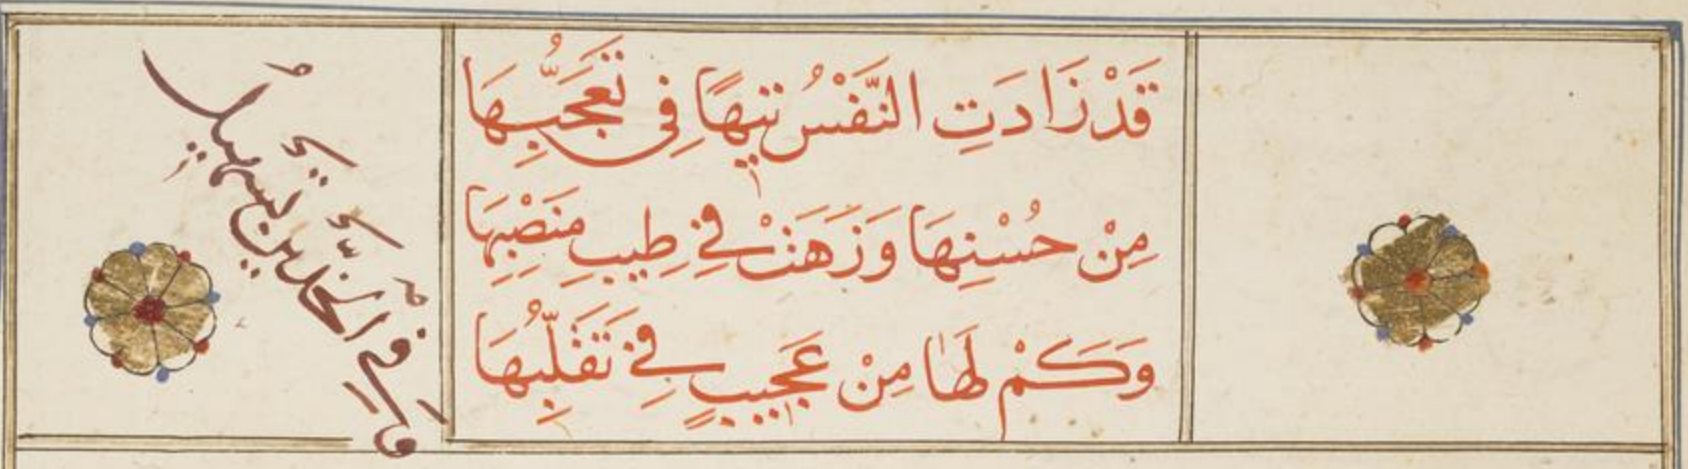 قَدْ زَادَتِ النَّفْسُ تِيهًا فِي تَعَجُّبِهَا
مِنْ حُسْنِهَا وَزَهَتْ فِي طِيبِ مَنْصِبِهَا
وَكَمْ لَهَا مِنْ عَجِيبٍ فِي تَقَلُّبِهَا
الخَدَّيْنِ يَسِيلُ